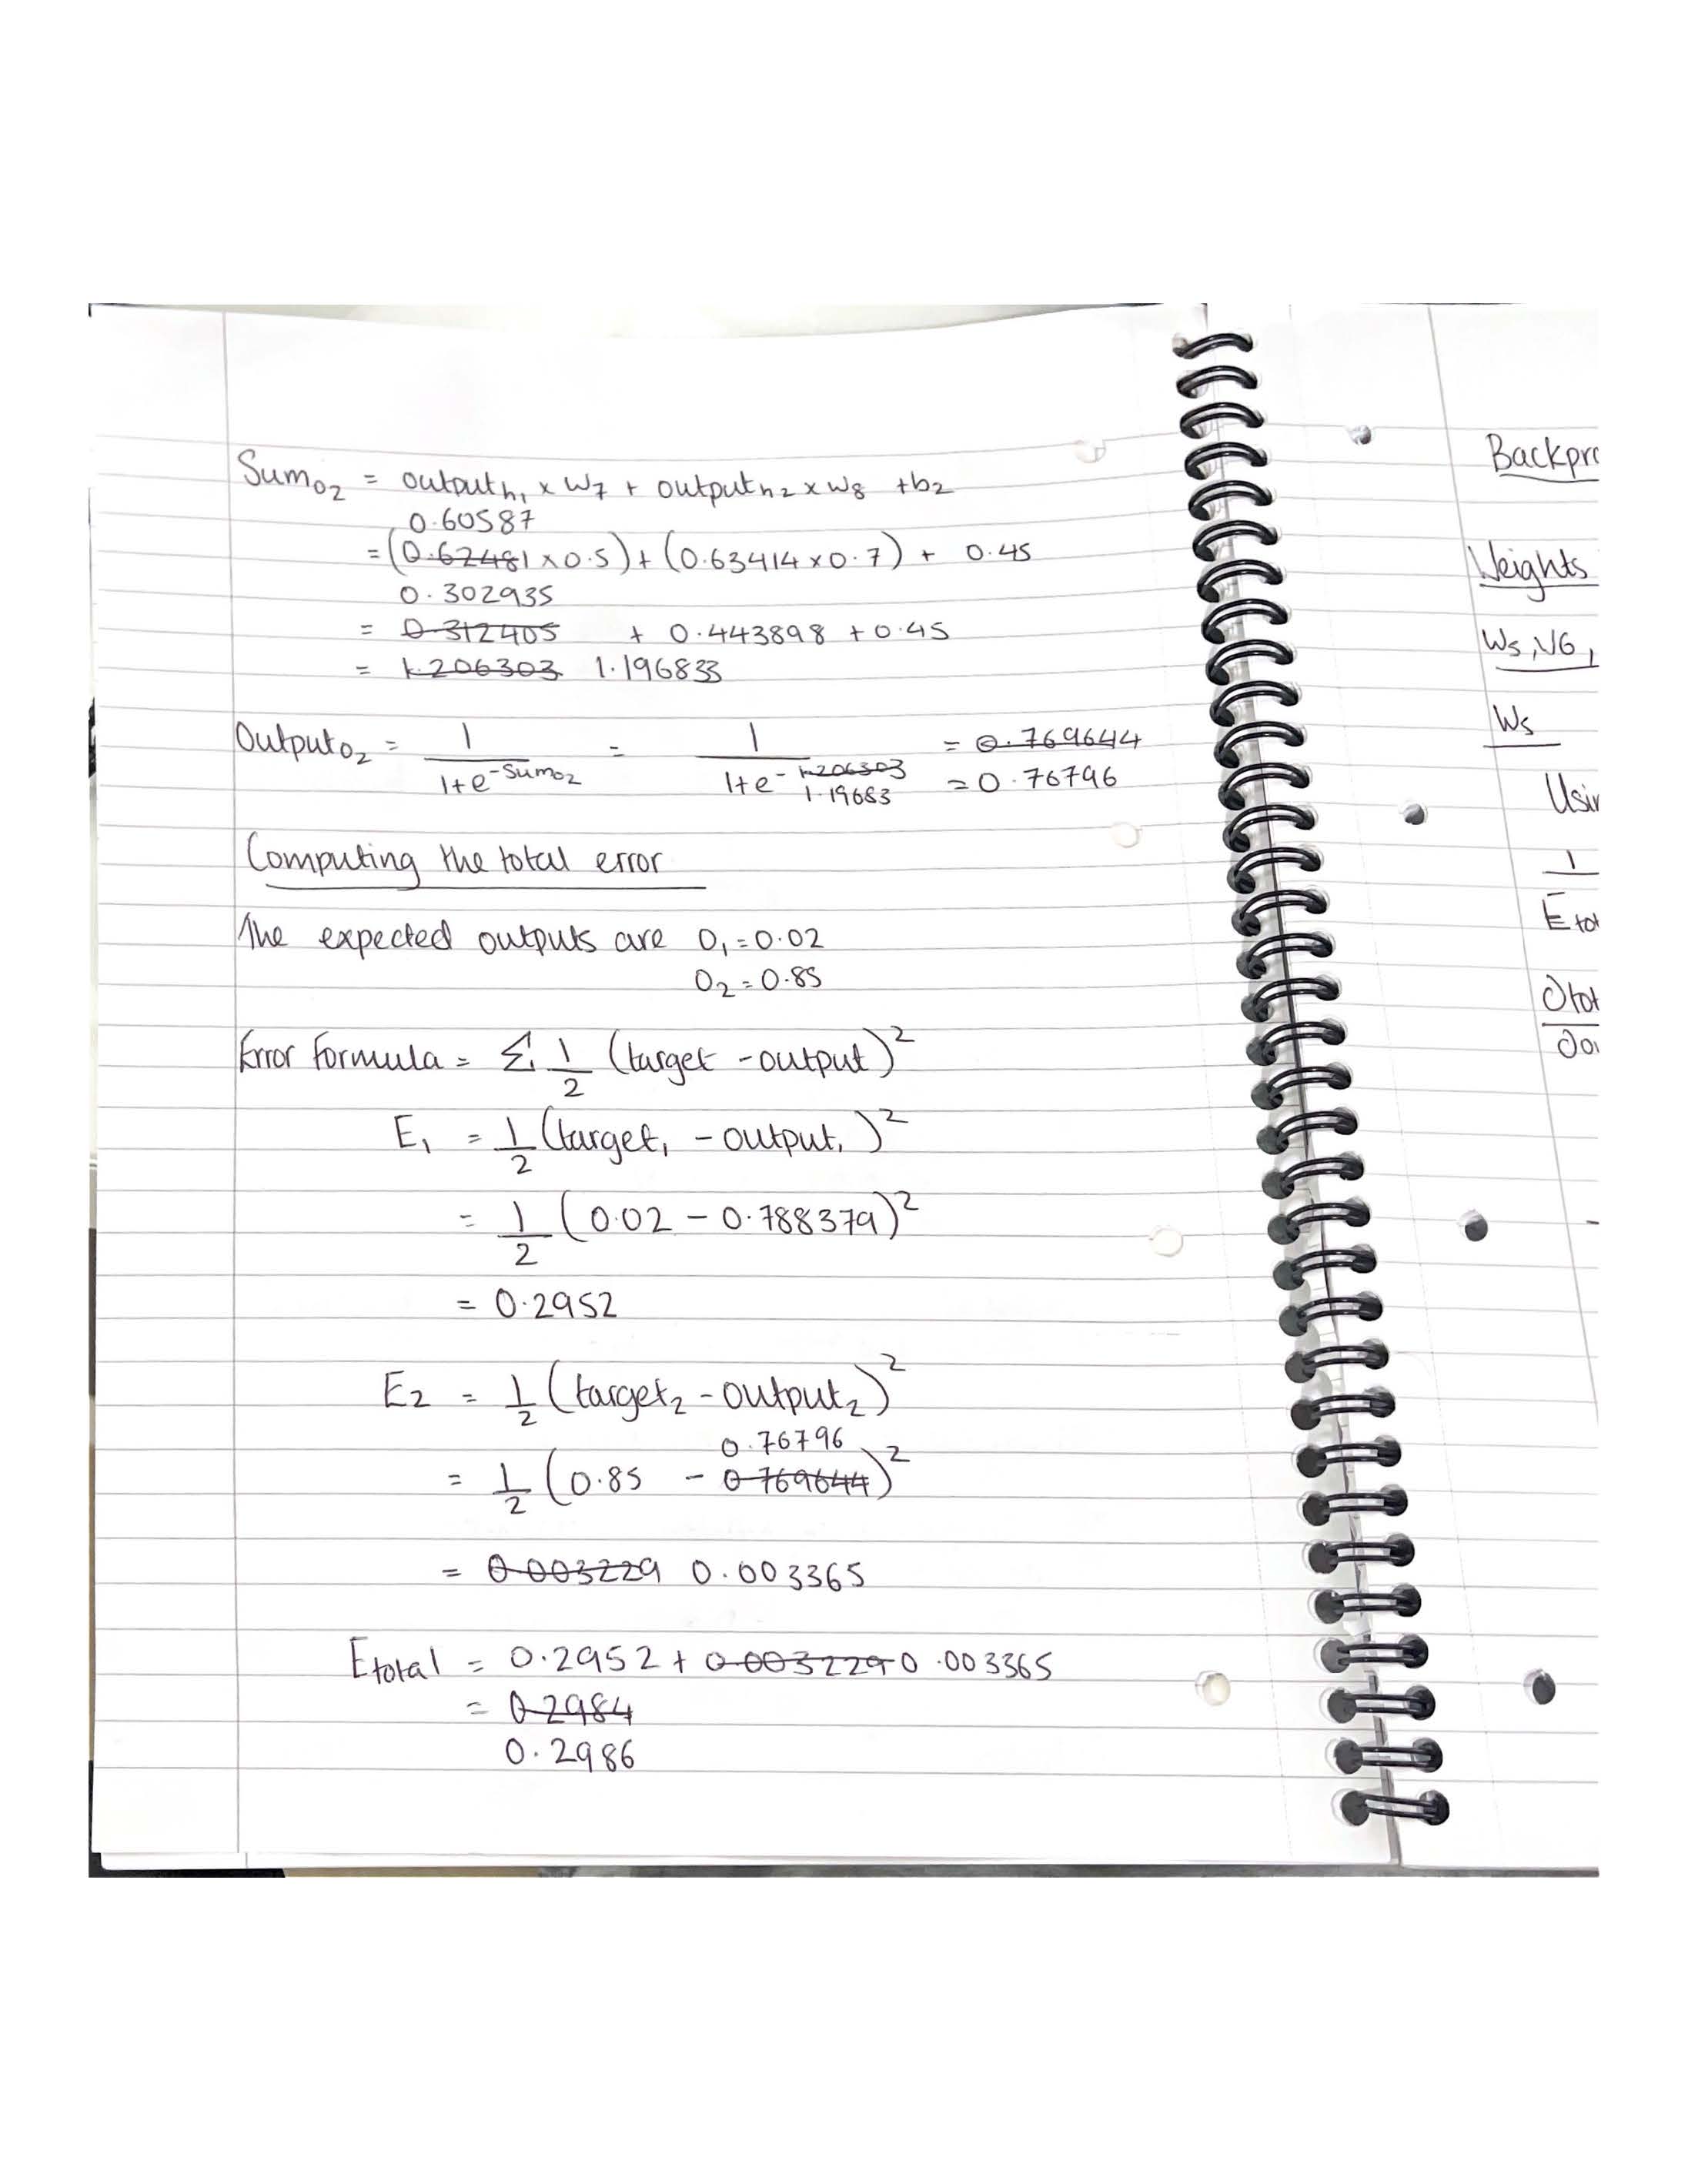 Sumo2 = outputh1 x W7 + outputh2 x W8 + b2
0.60587
= (0.62481 x 0.5) + (0.63414 x 0.7) + 0.45
0.302935
= 0.312405 + 0.443898 + 0.45
= 1.206303 1.196833
Outputo2 = 1 / 1+e^-Sumo2 = 1 / 1+e^-1.206303 = 0.769644
1.19683 = 0.76796
Computing the total error
The expected outputs are O1 = 0.02
O2 = 0.85
Error Formula = Σ 1/2 (target - output)²
E1 = 1/2 (target1 - output1)²
= 1/2 (0.02 - 0.788379)²
= 0.2952
E2 = 1/2 (target2 - output2)²
0.76796
= 1/2 (0.85 - 0.769644)²
= 0.003229 0.003365
Etotal = 0.2952 + 0.003229 0.003365
= 0.2984
0.2986
Backpro
Weights
W5, V6,
W5
Usin
1
Etot
∂tot
∂o1